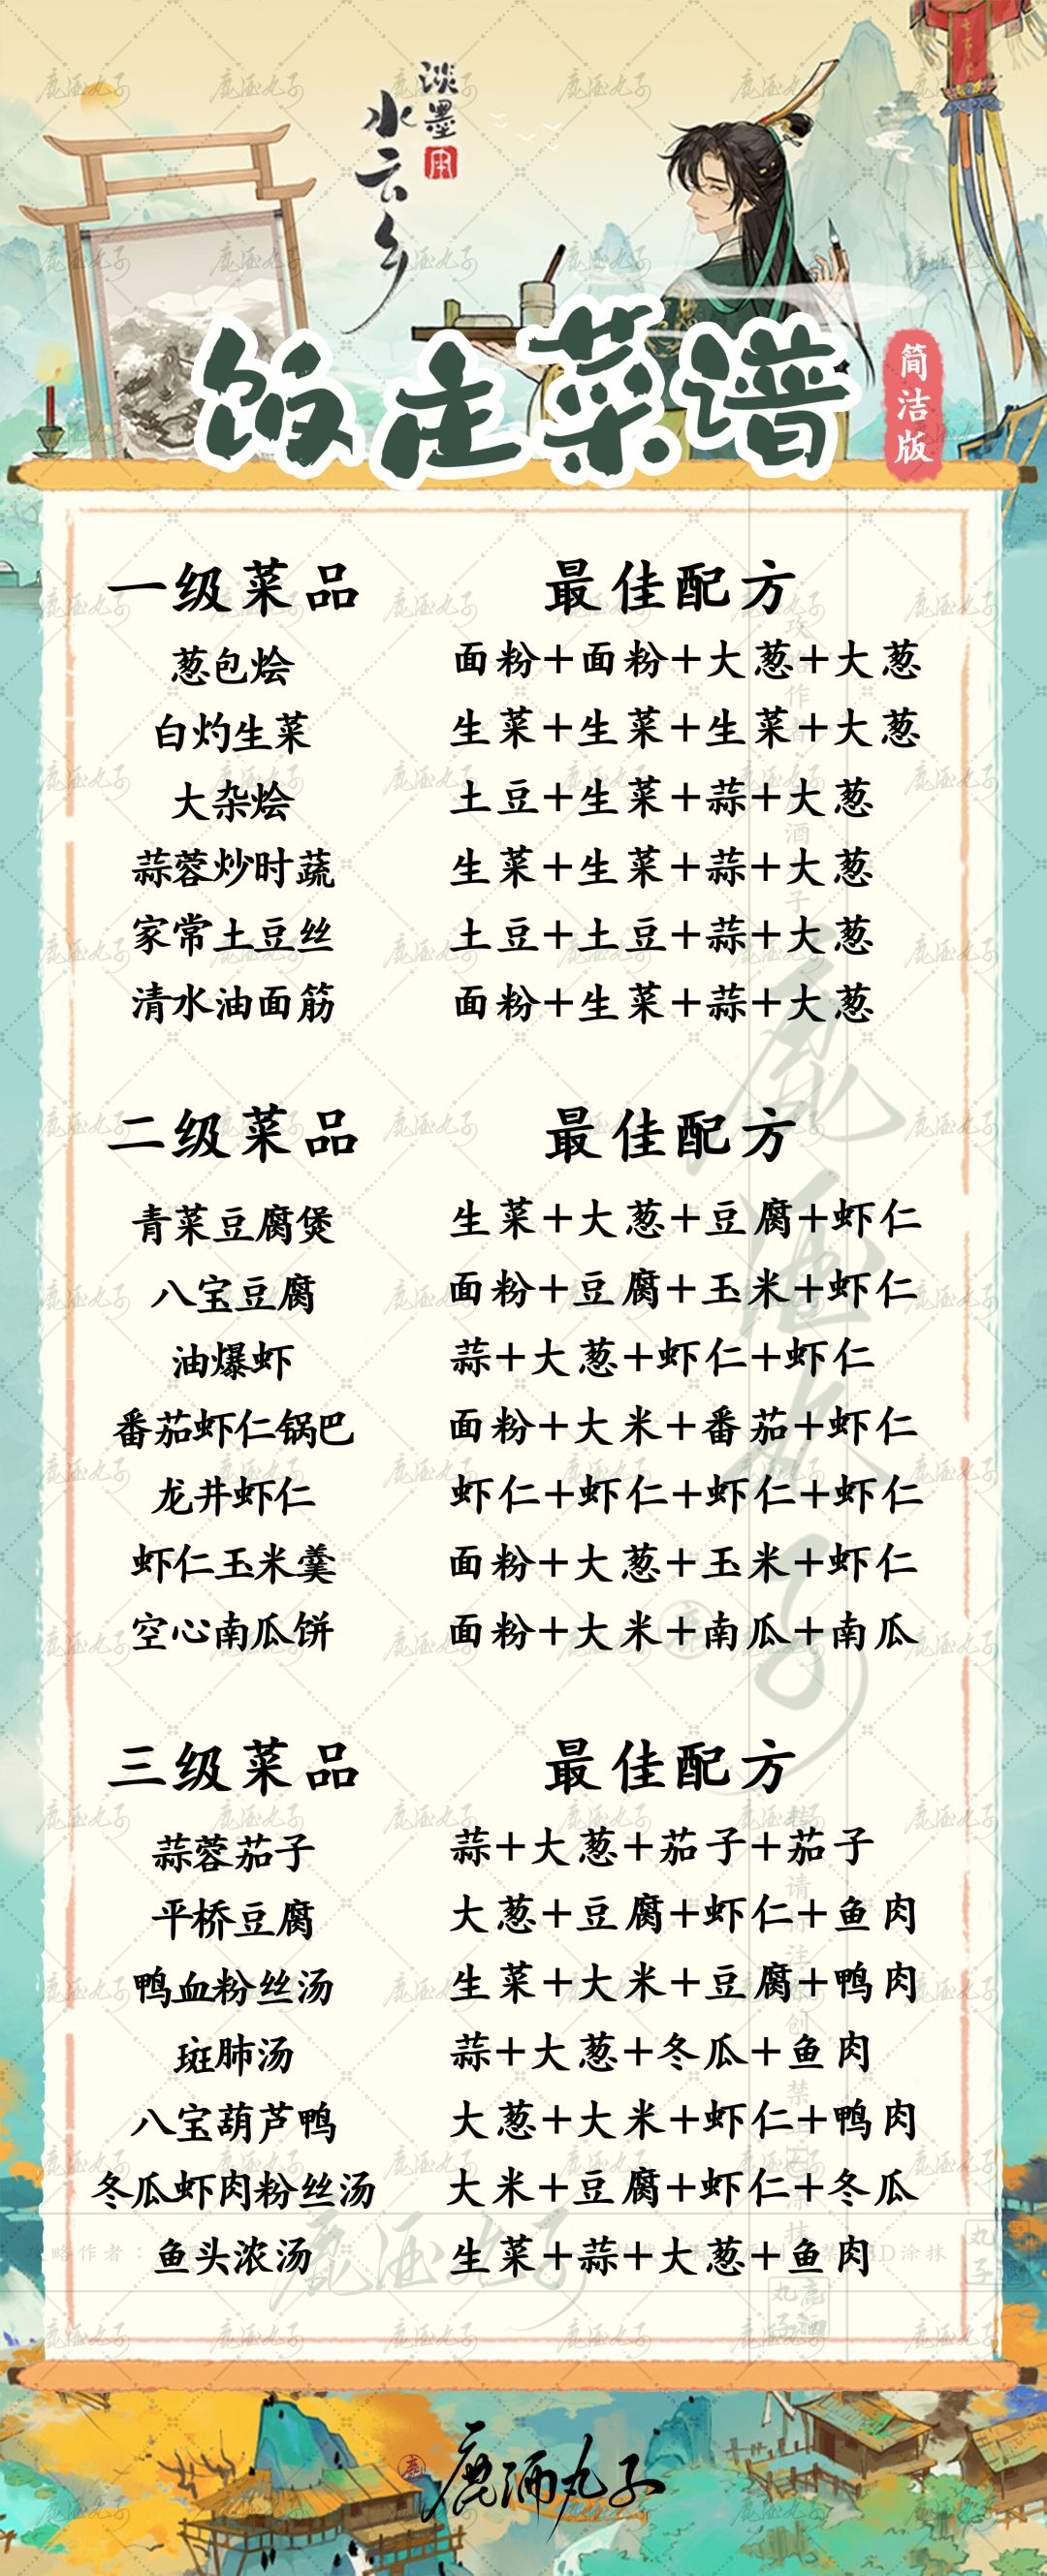 淡墨
水云乡
饭走菜谱
简洁版
一级菜品 最佳配方
葱包烩 面粉+面粉+大葱+大葱
白灼生菜 生菜+生菜+生菜+大葱
大杂烩 土豆+生菜+蒜+大葱
蒜蓉炒时蔬 生菜+生菜+蒜+大葱
家常土豆丝 土豆+土豆+蒜+大葱
清水油面筋 面粉+生菜+蒜+大葱
二级菜品 最佳配方
青菜豆腐煲 生菜+大葱+豆腐+虾仁
八宝豆腐 面粉+豆腐+玉米+虾仁
油爆虾 蒜+大葱+虾仁+虾仁
番茄虾仁锅巴 面粉+大米+番茄+虾仁
龙井虾仁 虾仁+虾仁+虾仁+虾仁
虾仁玉米羹 面粉+大葱+玉米+虾仁
空心南瓜饼 面粉+大米+南瓜+南瓜
三级菜品 最佳配方
蒜蓉茄子 蒜+大葱+茄子+茄子
平桥豆腐 大葱+豆腐+虾仁+鱼肉
鸭血粉丝汤 生菜+大米+豆腐+鸭肉
斑肺汤 蒜+大葱+冬瓜+鱼肉
八宝葫芦鸭 大葱+大米+虾仁+鸭肉
冬瓜虾肉粉丝汤 大米+豆腐+虾仁+冬瓜
鱼头浓汤 生菜+蒜+大葱+鱼肉
鹿酒丸子